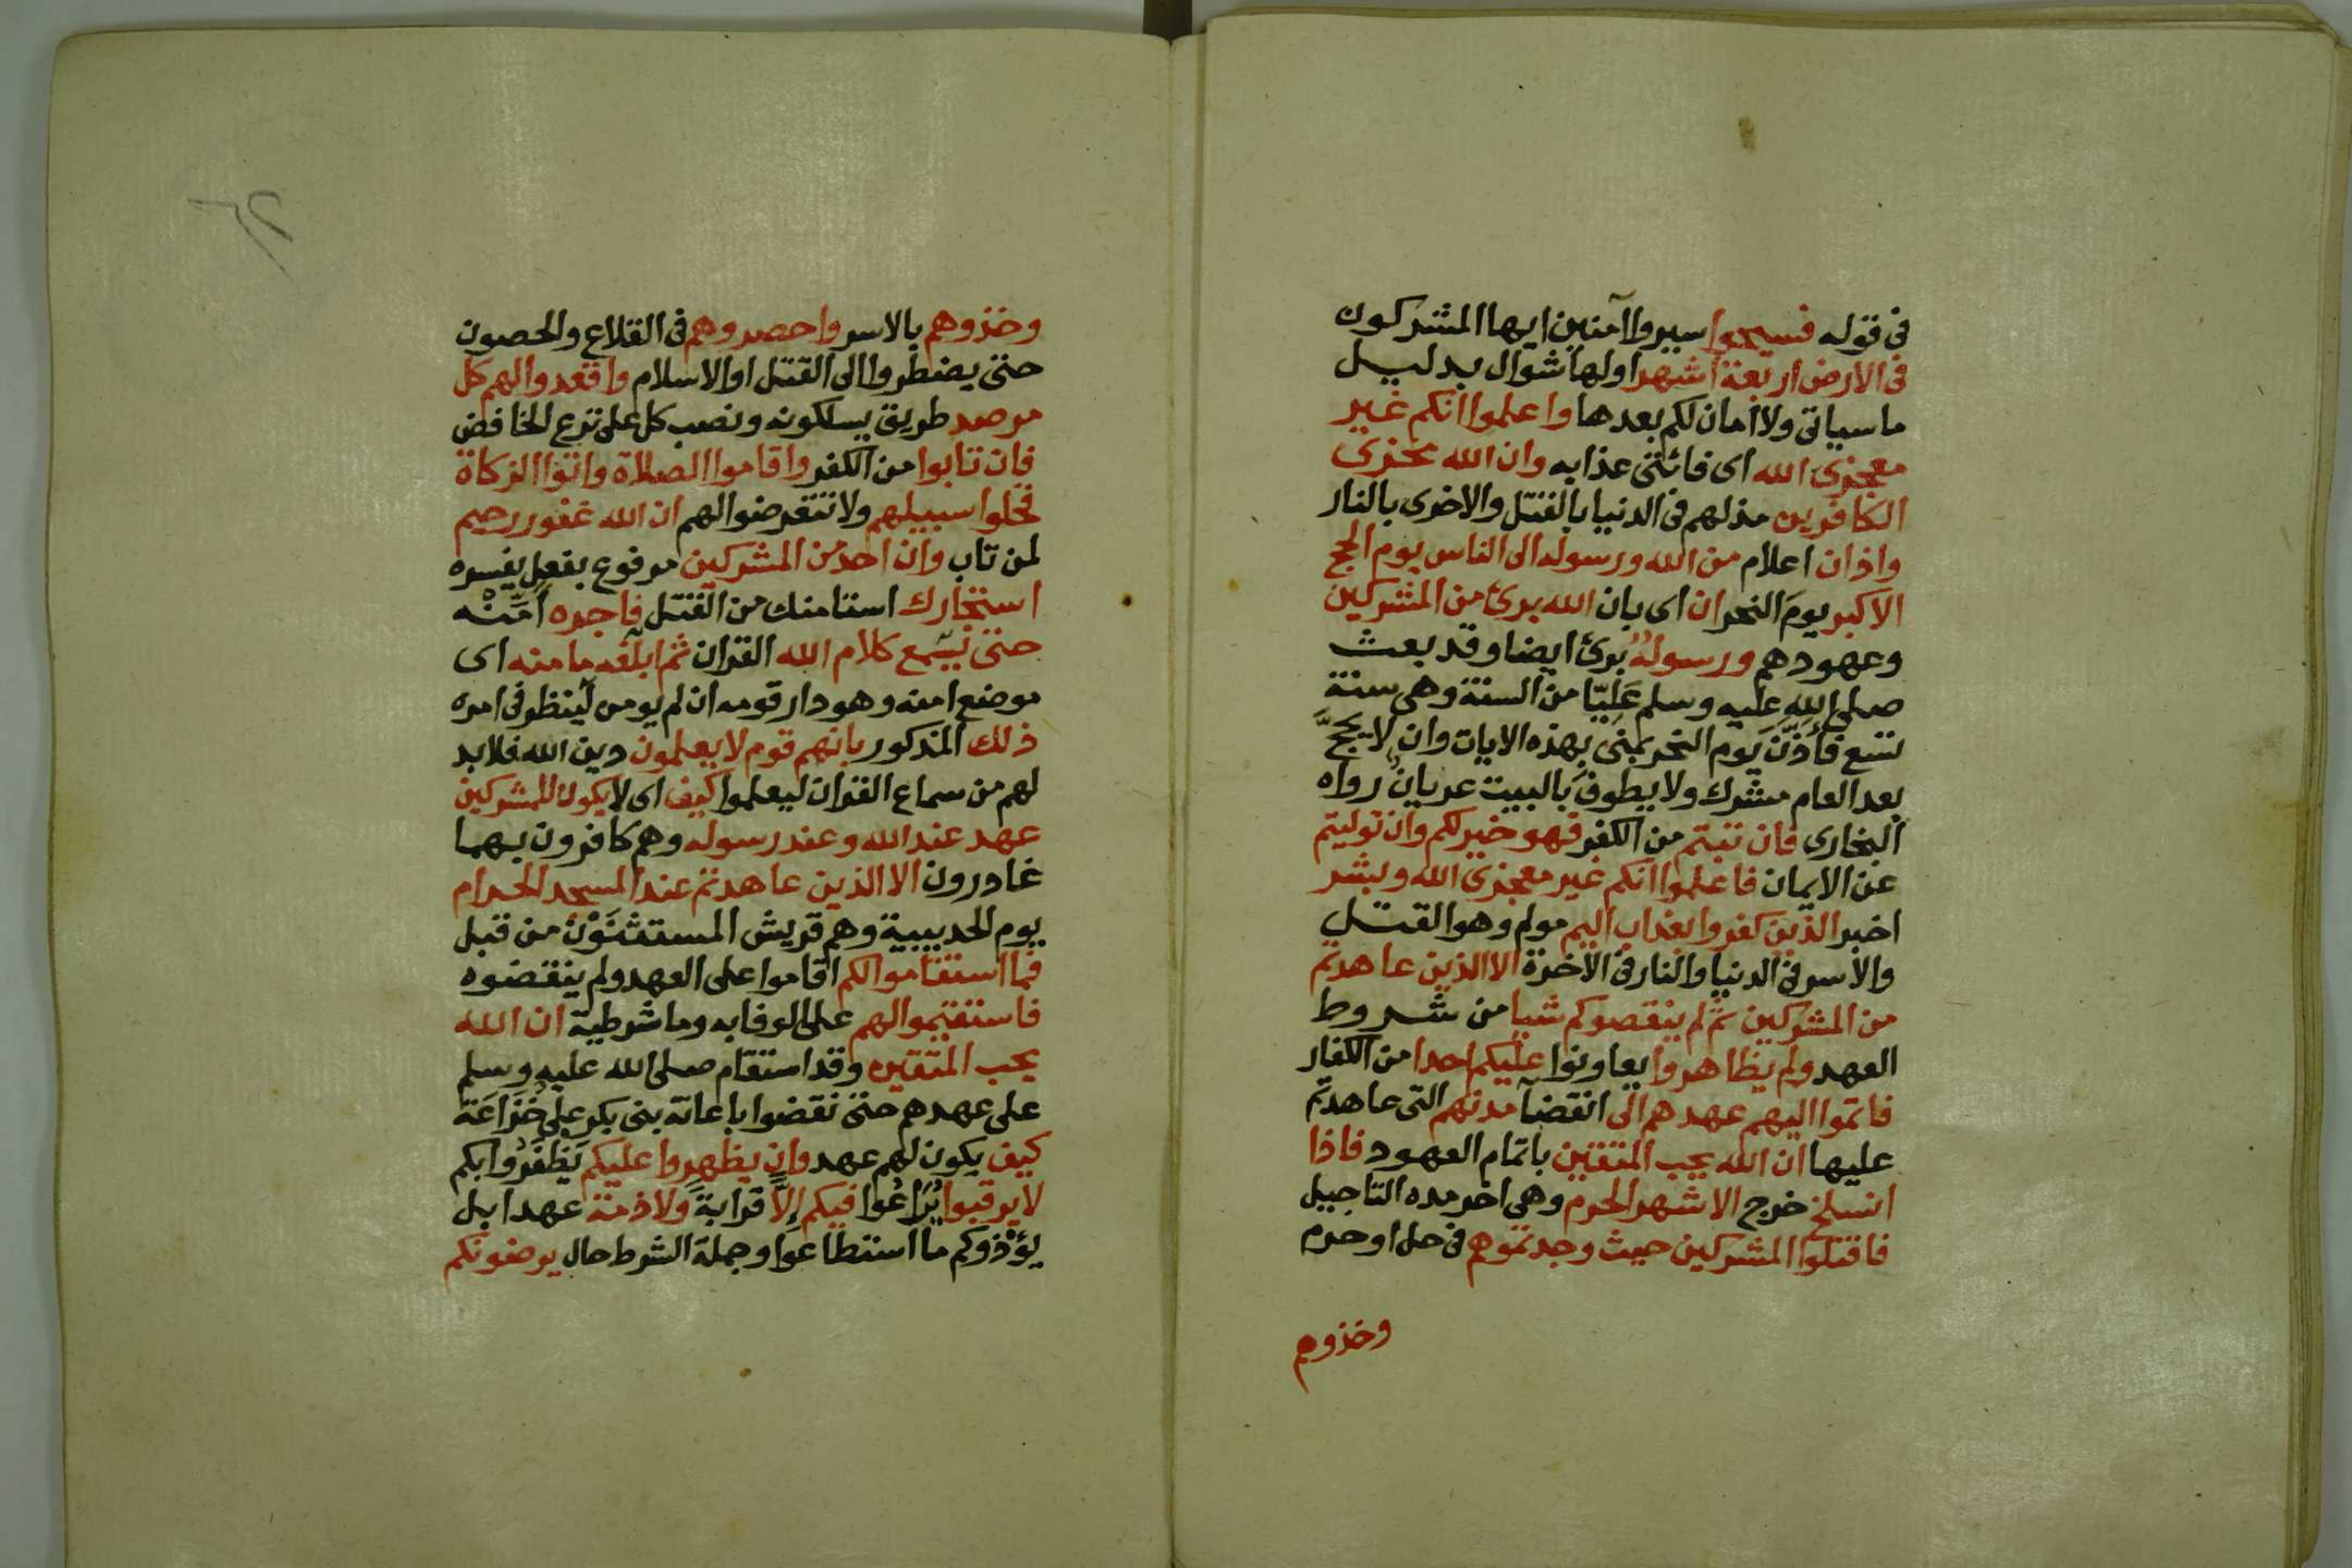 فى قوله فسيحوا سيروا آمنين ايها المشركون
فى الارض اربعة اشهر اولها شوال بدليل
ما سياتى ولا امان لكم بعدها واعلموا انكم غير
معجزى الله اى فائتى عذابه وان الله مخزى
الكافرين مذلهم فى الدنيا بالقتل والاخرى بالنار
واذان اعلام من الله ورسوله الى الناس يوم الحج
الاكبر يوم النحر ان اى بان الله برئ من المشركين
وعهودهم ورسولُهُ برئ ايضا وقد بعث
صلى الله عليه وسلم عَلِيّا من السنة وهى سنة
تسع فأذّن يوم النحر بمنى بهذه الايات وان لا يحجَّ
بعد العام مشرك ولا يطوفَ بالبيت عريانٌ رواه
البخارى فان تبتم من الكفر فهو خير لكم وان توليتم
عن الايمان فاعلموا انكم غير معجزى الله وبشر
اخبر الذين كفروا بعذاب اليم مولم وهو القتل
والاسر فى الدنيا والنار فى الآخرة الا الذين عاهدتم
من المشركين ثم لم ينقصوكم شيا من شروط
العهد ولم يظاهروا يعاونوا عليكم احدا من الكفار
فاتموا اليهم عهدهم الى انقضآ مدتهم التى عاهدتم
عليها ان الله يحب المتقين باتمام العهود فاذا
انسلخ خرج الاشهر الحرم وهى اخر مده التاجيل
فاقتلوا المشركين حيث وجدتموهم فى حل او حرم
وخذوهم
وخذوهم بالاسر واحصروهم فى القلاع والحصون
حتى يضطروا الى القتل او الاسلام واقعدوا لهم كل
مرصد طريق يسلكونه ونصب كل على نزع الخافض
فان تابوا من الكفر واقاموا الصلاة واتوا الزكاة
فخلوا سبيلهم ولا تتعرضوا لهم ان الله غفور رحيم
لمن تاب وان احد من المشركين مرفوع بفعل يفسره
استجارك استامنك من القتل فاجره امّنْه
حتى يسمع كلام الله القران ثم ابلغه مامنه اى
موضع امنه وهو دار قومه ان لم يومن لينظر فى امره
ذلك المذكور بانهم قوم لا يعلمون دين الله فلا بد
لهم من سماع القران ليعلموا كيف اى لا يكون للمشركين
عهد عند الله وعند رسوله وهم كافرون بهما
غادرون الا الذين عاهدتم عند المسجد الحرام
يوم الحديبية وهم قريش المستثنَوْن من قبل
فما استقاموا لكم اقاموا على العهد ولم ينقضوه
فاستقيموا لهم على الوفا به وما شرطية ان الله
يحب المتقين وقد استقام صلى الله عليه وسلم
على عهدهم حتى نقضوا باعانة بنى بكر على خُزَاعَة
كيف يكون لهم عهد وان يظهروا عليكم يَظفَرُوا بكم
لا يرقبوا يُرَاعُوا فيكم إِلّاً قرابةً ولا ذمة عهدا بل
يؤْذوكم ما استطاعوا وجملة الشرط حال يرضونكم